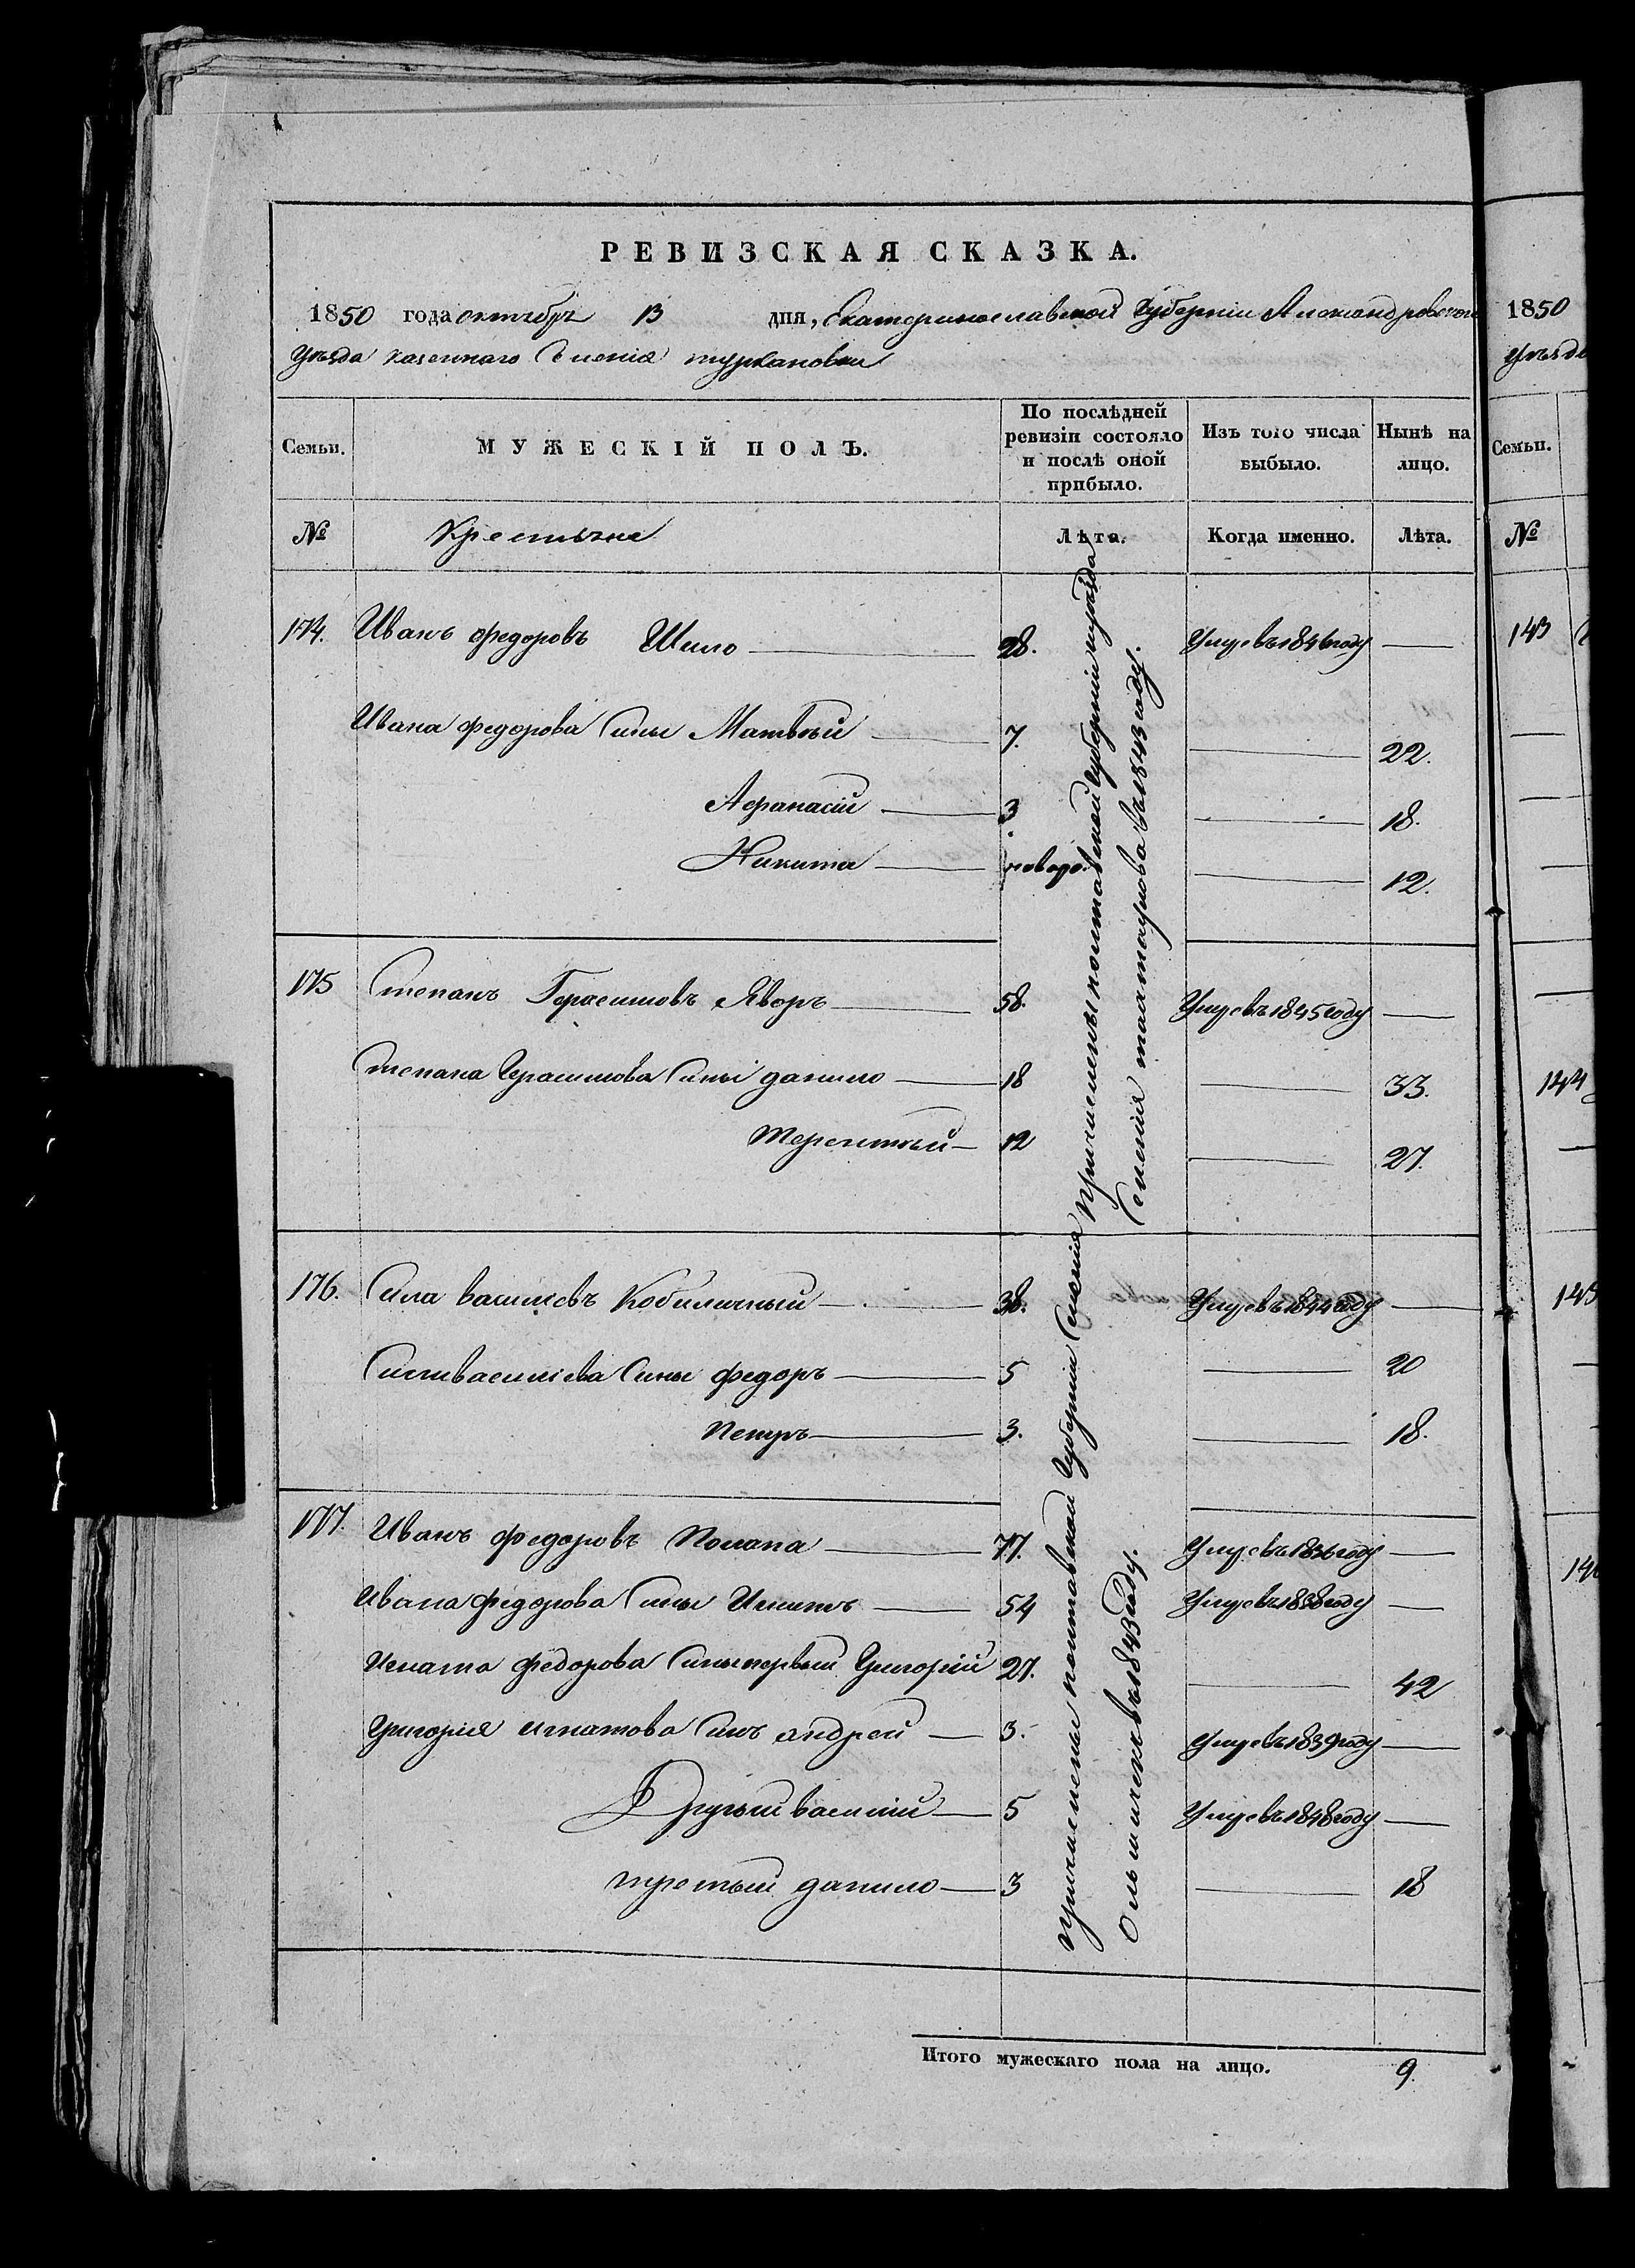 РЕВИЗСКАЯ СКАЗКА.
1850 года октября 13 дня, Екатеринославской Губерніи Александровского
уѣзда казеннаго Селенія туркановки
Семьи. МУЖЕСКІЙ ПОЛЪ. По послѣдней ревизіи состояло и послѣ оной прибыло. Изъ того числа выбыло. Нынѣ на лицо.
№ Крестьяне Лѣта. Когда именно. Лѣта.
174. Иванъ федоровъ Шило 28. Умре въ 1846 году
Ивана федорова Сины Матвѣй 7. 22.
Афанасій 3 18.
Никита новоро. 12.
175 Степанъ Герасимовъ Яворъ 58. Умре въ 1845 году
Степана Герасимова Сины данило 18 33.
терентий 12 27.
Причислены полтавской губерніи уезда
Селенія въ 1843 году.
176. Сила василіевъ Кобиличный 38. Умре въ 1844 году
Силы василіева Сины федоръ 5 20
Петръ 3. 18.
177. Иванъ федоровъ Потапа 77. Умре въ 1836 году
Ивана федорова Сины Игнатъ 54 Умре въ 1838 году
Игната федорова Сины первый Григорій 27. 42
Григорія игнатова Синъ андрей 3. Умре въ 1839 году
Другий василий 5 Умре въ 1848 году
третий данило 3 18
причислены полтавской губерніи Селенія
въ 1843 году.
Итого мужескаго пола на лицо. 9.
1850
уѣзда
Семьи.
№
143
144
145